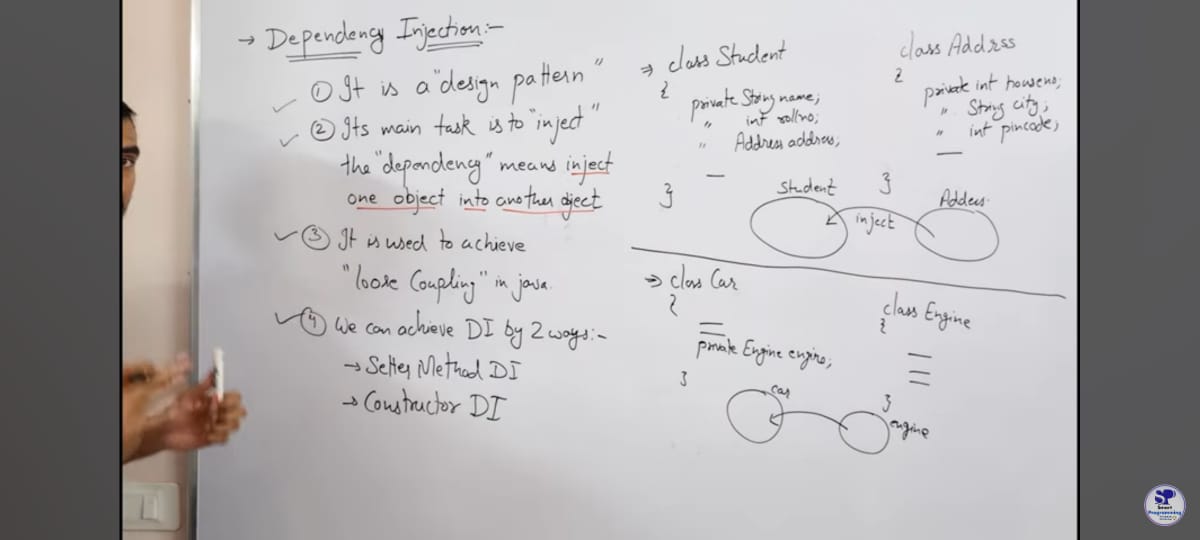 → Dependency Injection:-
① It is a "design pattern"
② Its main task is to "inject"
the "dependency" means inject
one object into another oject
③ It is used to achieve
"loose Coupling" in java.
④ We can achieve DI by 2 ways:-
→ Setter Method DI
→ Constructor DI
⇒ class Student
{
private String name;
" int rollno;
" Address address;
—
}
class Address
{
private int houseno;
" String city;
" int pincode;
—
}
Student
inject
Address
⇒ class Car
{
private Engine engine;
}
class Engine
{
}
car
engine
SP
Smart
Programming